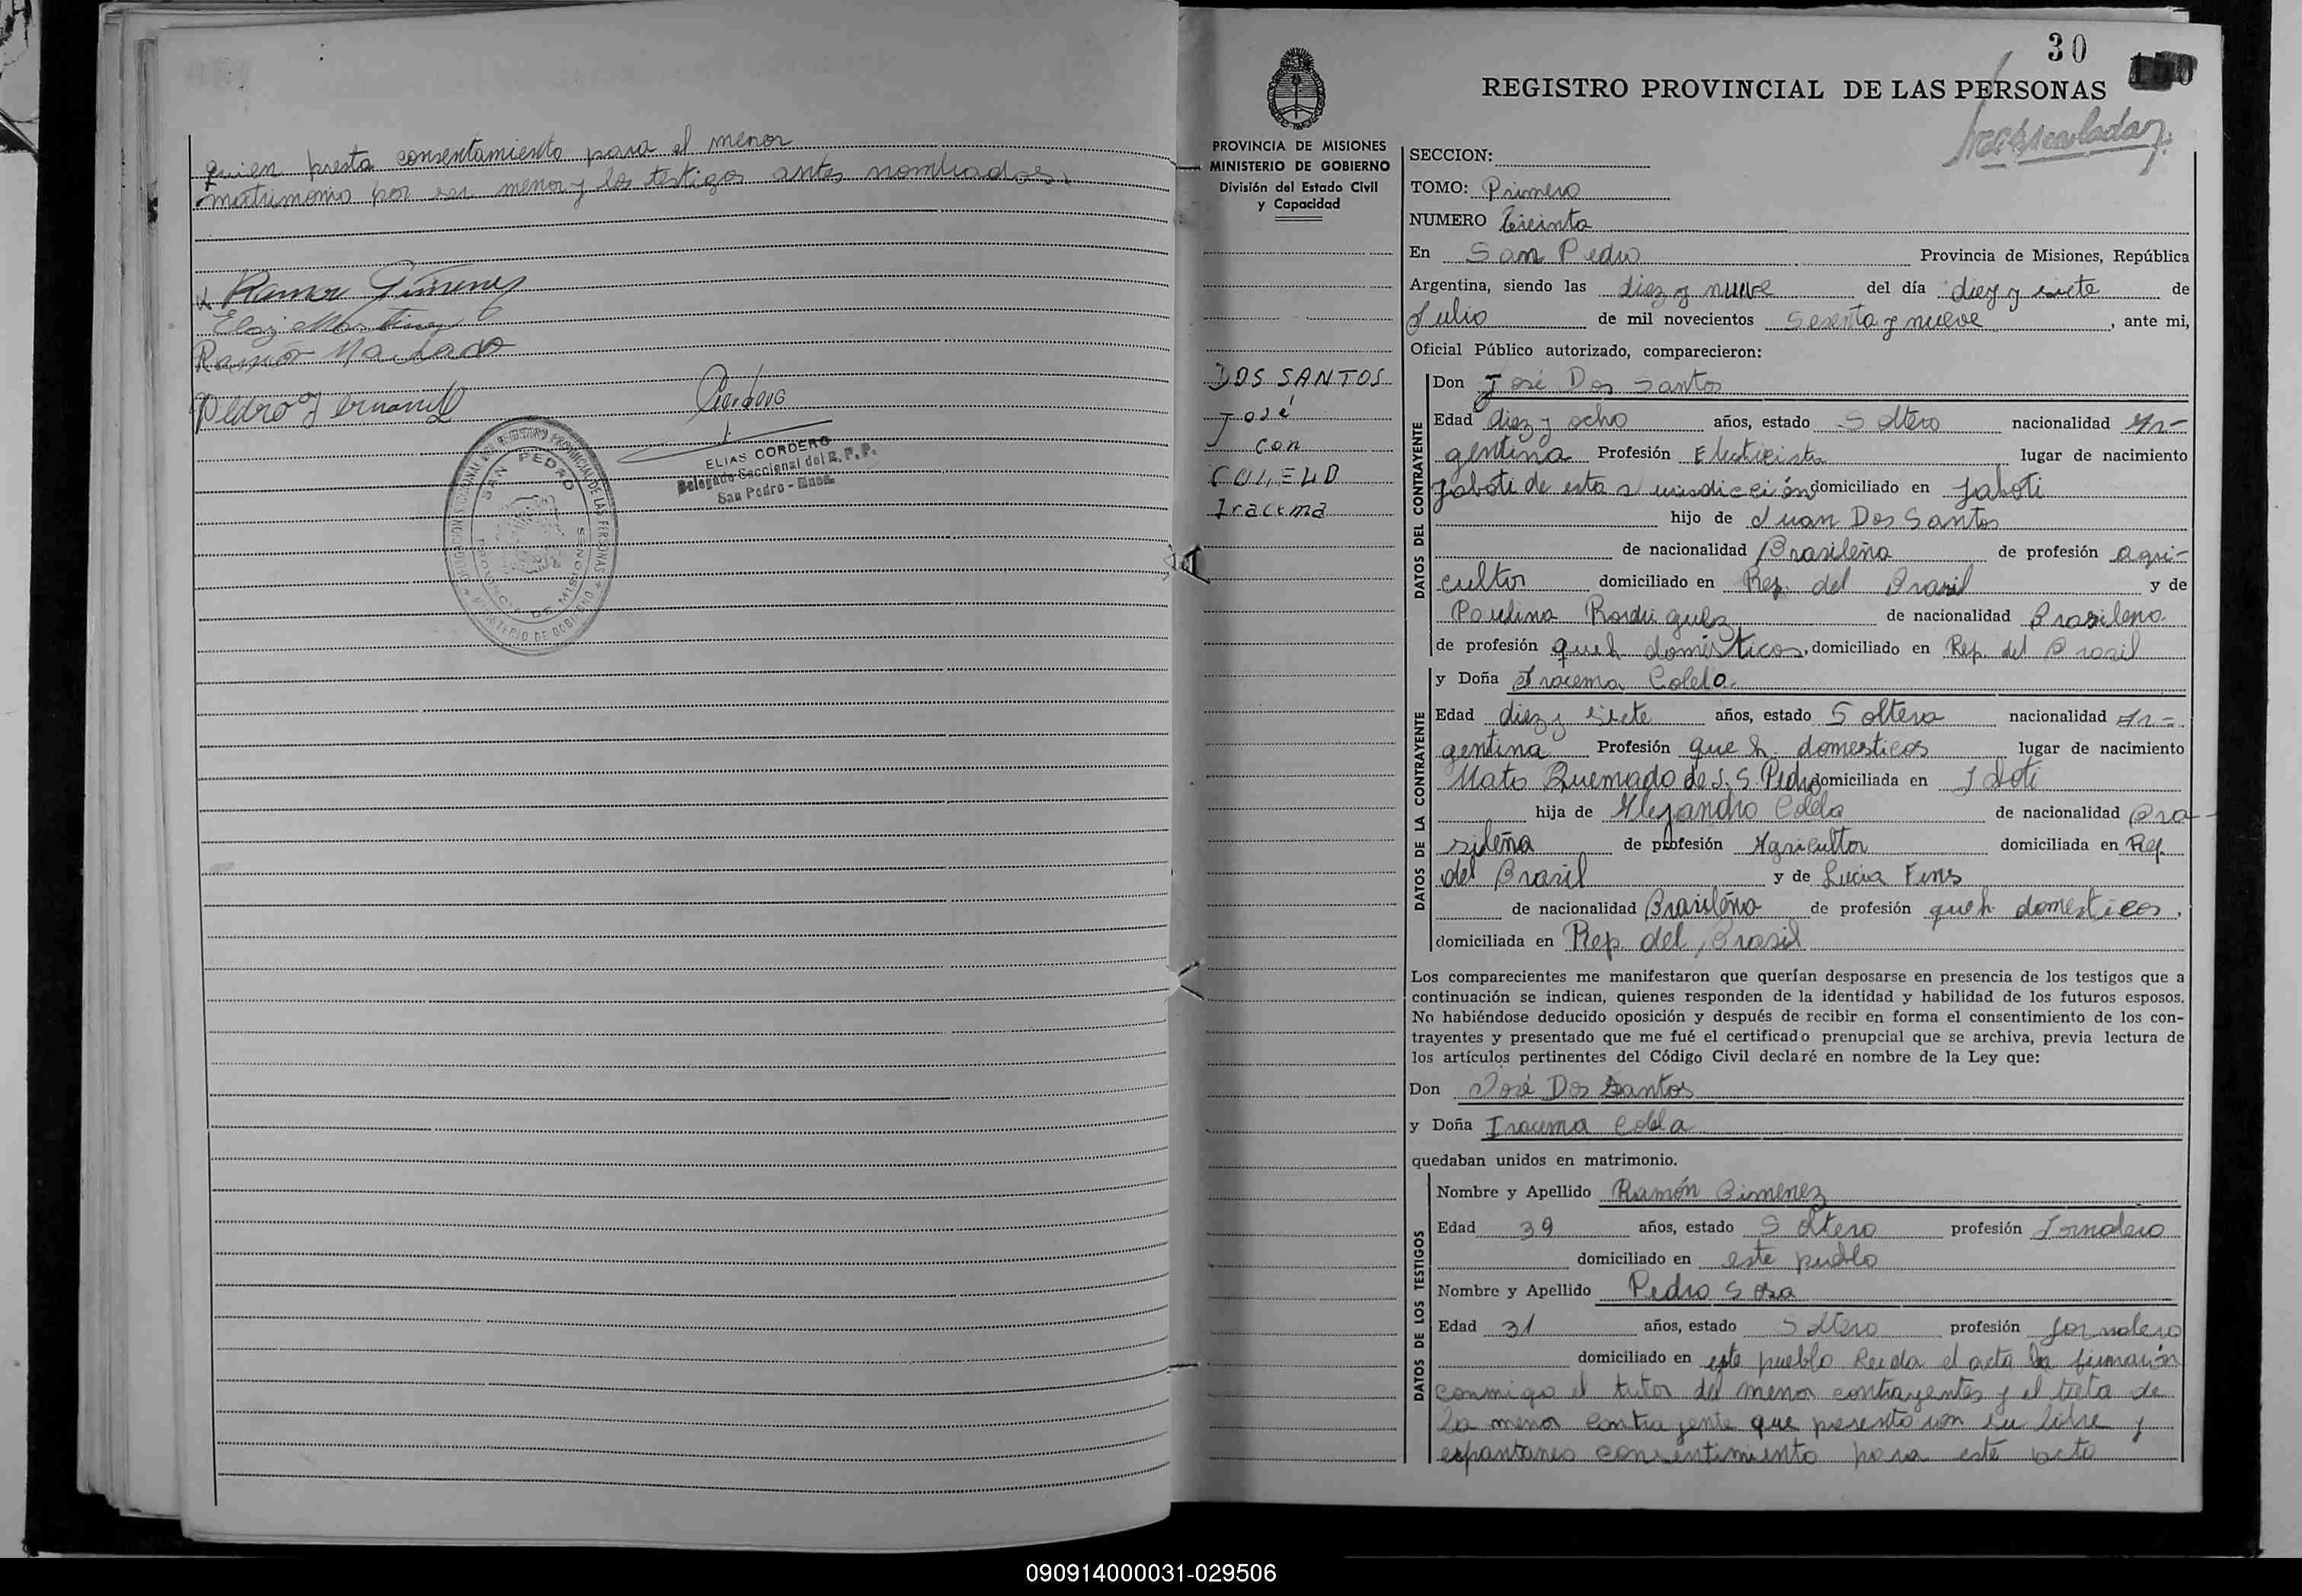 quien presta consentamiento para el menor
matrimonio por ser menor y los testigos antes nombrados.
Ramon Gimenez
Eloy Martinez
Ramón Machado
Pedro Fernandez
Cordero
ELIAS CORDERO
Delegado Seccional del R. P. P.
San Pedro - Mnes.
SAN PEDRO
PROVINCIA DE MISIONES
MINISTERIO DE GOBIERNO
REGISTRO PROVINCIAL DE LAS PERSONAS
30
REGISTRO PROVINCIAL DE LAS PERSONAS
PROVINCIA DE MISIONES
MINISTERIO DE GOBIERNO
División del Estado Civil
y Capacidad
DOS SANTOS
José
con
COLELO
Iracema
SECCION:
TOMO: Primero
NUMERO Treinta
En San Pedro Provincia de Misiones, República
Argentina, siendo las diez y nueve del día diez y siete de
Julio de mil novecientos Sesenta y nueve, ante mi,
Oficial Público autorizado, comparecieron:
DATOS DEL CONTRAYENTE
Don José Dos Santos
Edad diez y ocho años, estado Soltero nacionalidad Ar-
gentina Profesión Electricista lugar de nacimiento
Jaboti de esta Jurisdicción domiciliado en Jaboti
hijo de Juan Dos Santos
de nacionalidad Brasileña de profesión agri-
cultor domiciliado en Rep. del Brasil y de
Paulina Rordriguez de nacionalidad Brasilena
de profesión queh domésticos, domiciliado en Rep. del Brasil
DATOS DE LA CONTRAYENTE
y Doña Iracema Colelo.
Edad diez y siete años, estado Soltera nacionalidad Ar=
gentina Profesión que h. domesticos lugar de nacimiento
Mato Quemado de J. S. Pedro domiciliada en Jaboti
hija de Alejandro Colelo de nacionalidad Bra-
sileña de profesión Agricultor domiciliada en Rep
del Brasil y de Lucia Fins
de nacionalidad Brasileña de profesión queh. domesticos.
domiciliada en Rep. del Brasil
Los comparecientes me manifestaron que querían desposarse en presencia de los testigos que a
continuación se indican, quienes responden de la identidad y habilidad de los futuros esposos.
No habiéndose deducido oposición y después de recibir en forma el consentimiento de los con-
trayentes y presentado que me fué el certificado prenupcial que se archiva, previa lectura de
los artículos pertinentes del Código Civil declaré en nombre de la Ley que:
Don José Dos Santos
y Doña Iracema Colela
quedaban unidos en matrimonio.
DATOS DE LOS TESTIGOS
Nombre y Apellido Ramón Gimenez
Edad 39 años, estado Soltero profesión Jornalero
domiciliado en este pueblo
Nombre y Apellido Pedro Sosa
Edad 31 años, estado Soltero profesión Jornalero
domiciliado en este pueblo Leida el acta la firmarón
conmigo el tutor del menor contrayentes y el de
la menor contrayente que presentaron su libre y
espontaneo consentimiento para este acto
090914000031-029506